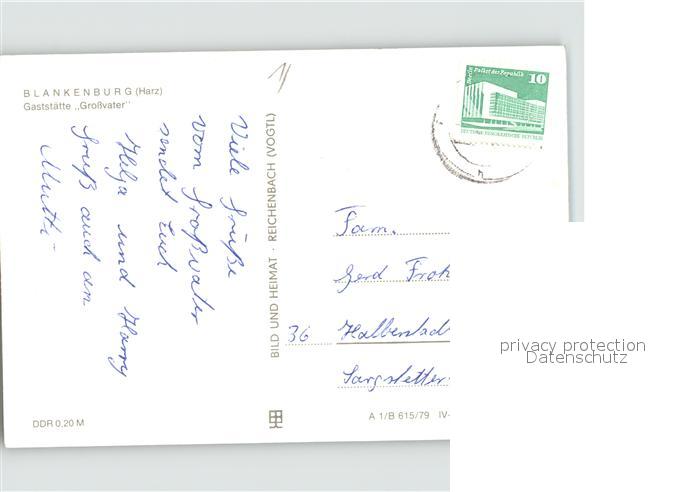 BLANKENBURG (Harz)
Gaststätte „Großvater"
Viele Grüße
vom Großvater
sendet Euch
Helga und Harry
Gruß auch an
Mutti
BILD UND HEIMAT · REICHENBACH (VOGTL)
Berlin
Palast der Republik
10
DEUTSCHE DEMOKRATISCHE REPUBLIK
Fam.
Gerd Froh
36 Halberstad
Sargstetter
DDR 0,20 M
A 1/B 615/79 IV-
privacy protection
Datenschutz